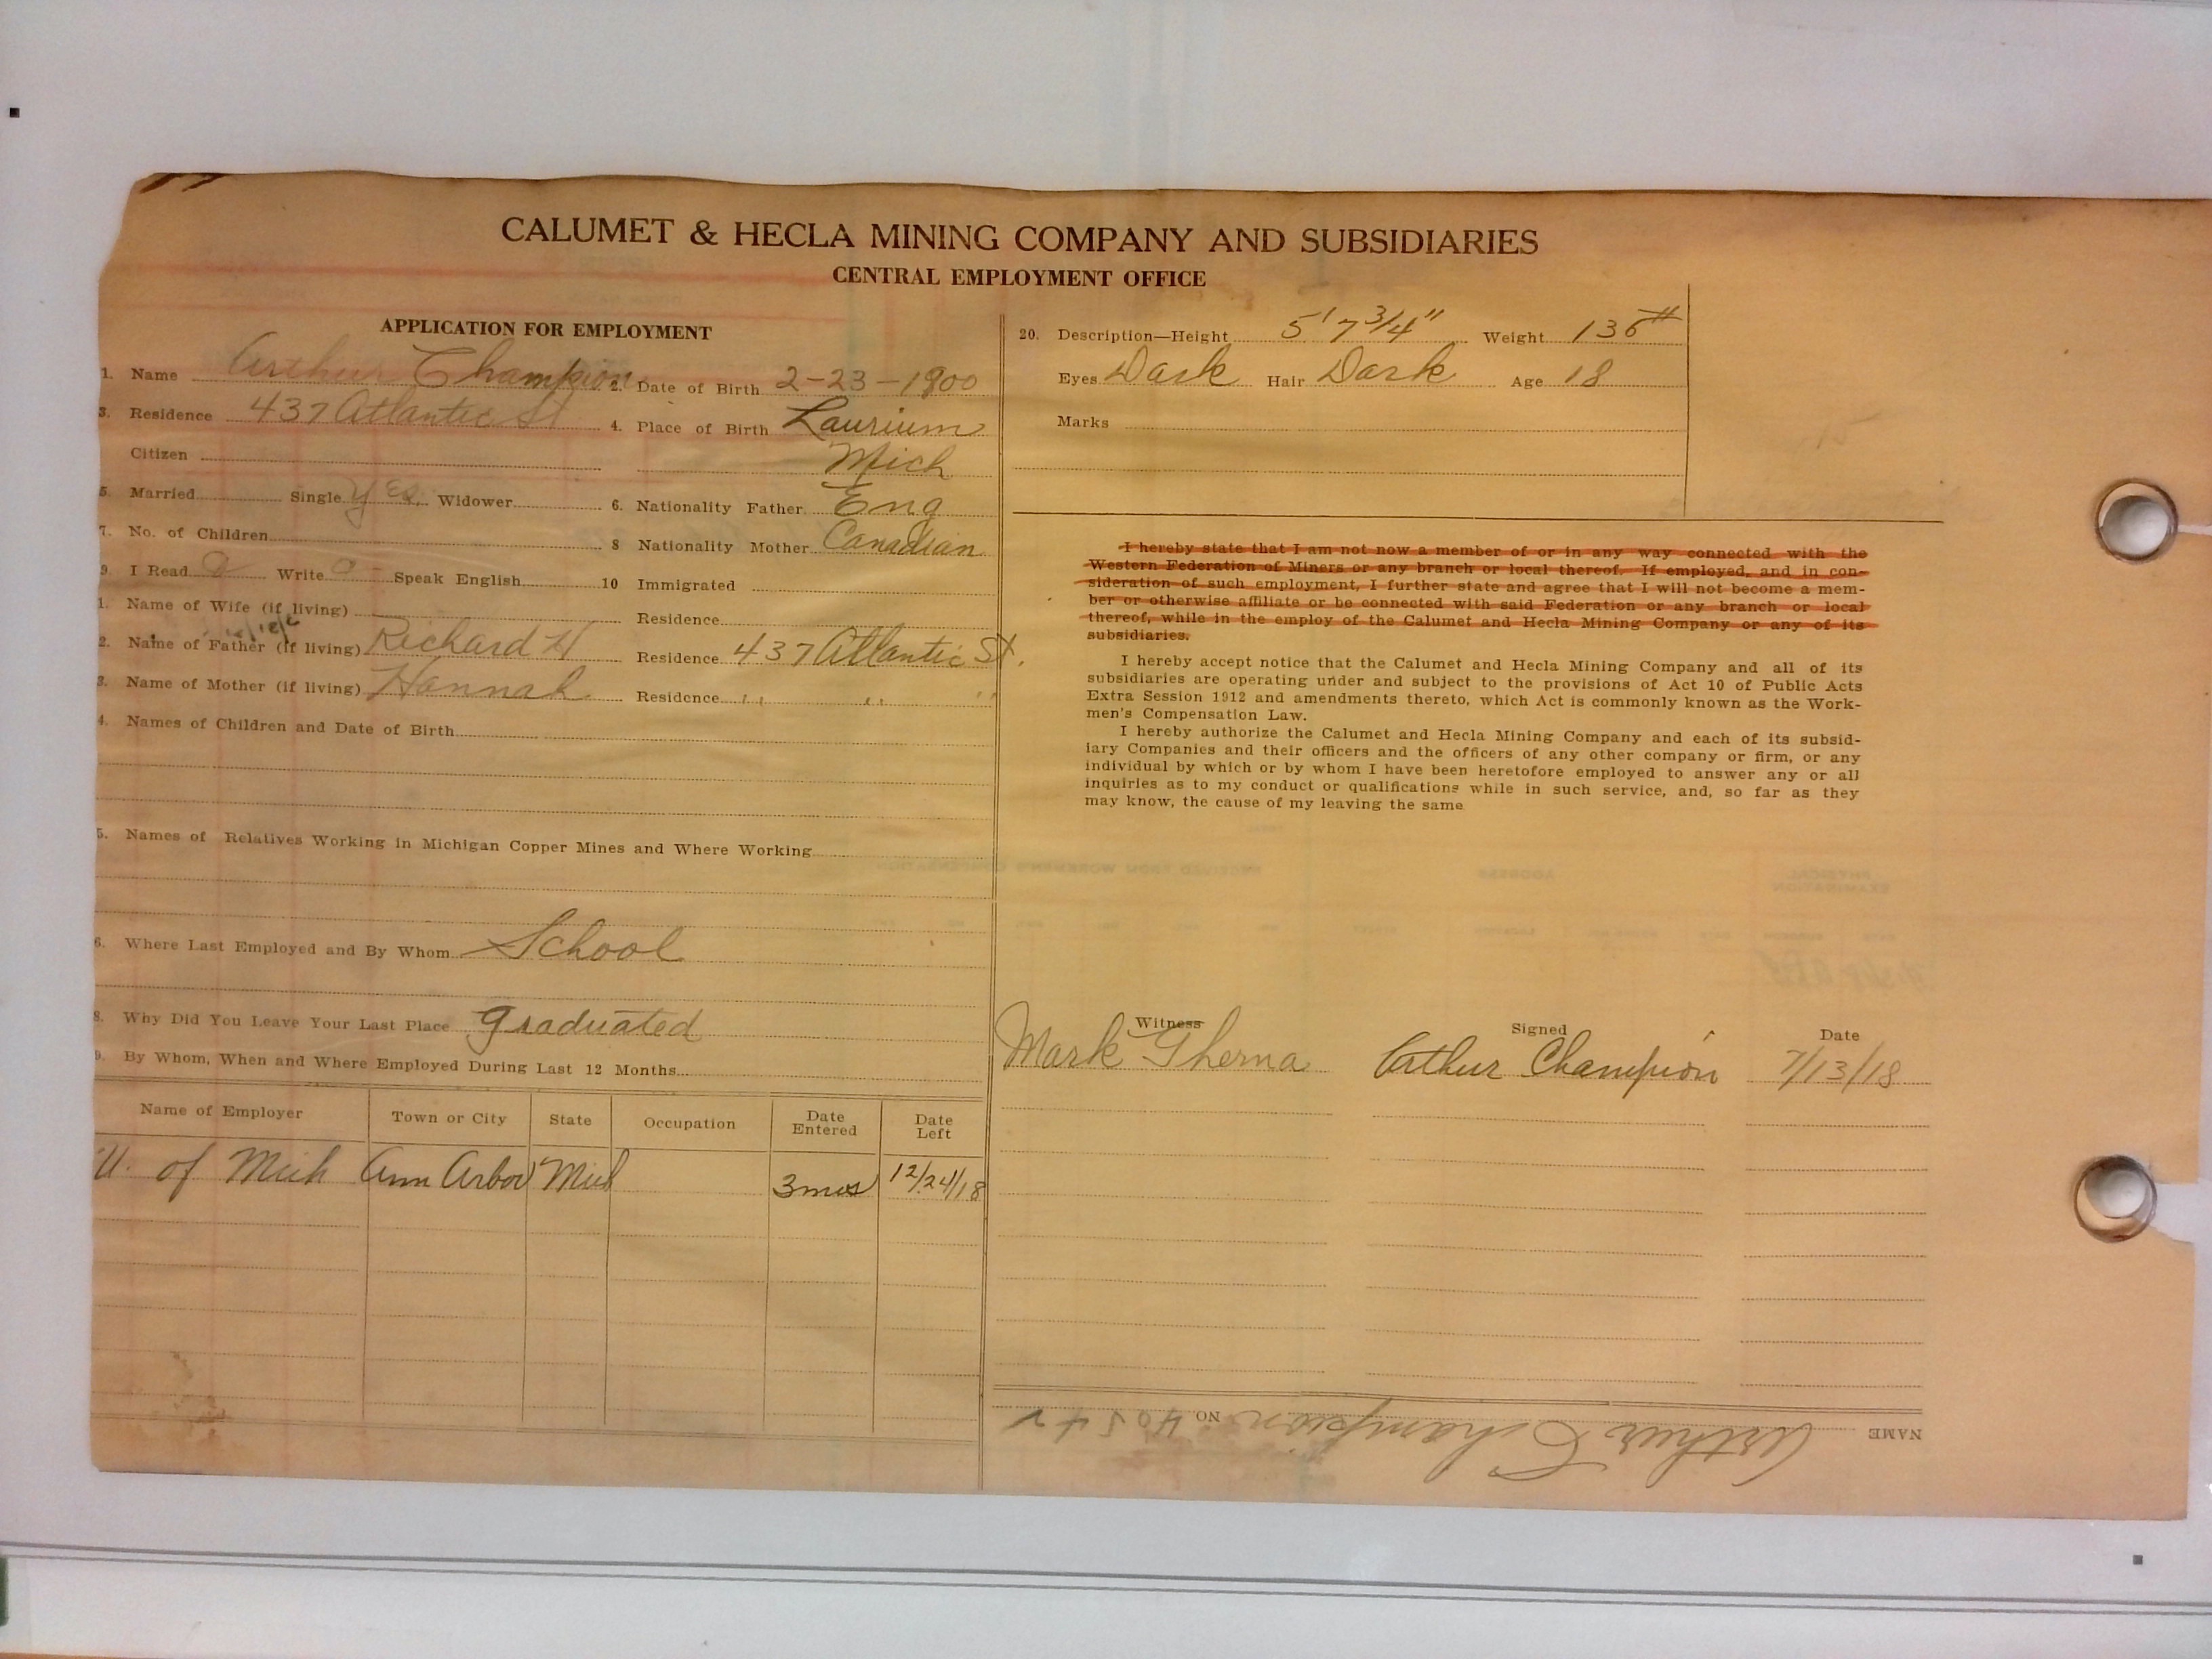 CALUMET & HECLA MINING COMPANY AND SUBSIDIARIES
CENTRAL EMPLOYMENT OFFICE
APPLICATION FOR EMPLOYMENT
1. Name Arthur Champion 2. Date of Birth 2-23-1900
3. Residence 437 Atlantic St 4. Place of Birth Laurium
Citizen Mich
5. Married Single Yes. Widower 6. Nationality Father Eng
7. No. of Children 8 Nationality Mother Canadian
9. I Read Write Speak English 10 Immigrated
1. Name of Wife (if living) Residence
2. Name of Father (if living) Richard H Residence 437 Atlantic St.
3. Name of Mother (if living) Hannah Residence " " "
4. Names of Children and Date of Birth
5. Names of Relatives Working in Michigan Copper Mines and Where Working
6. Where Last Employed and By Whom School
8. Why Did You Leave Your Last Place graduated
9. By Whom, When and Where Employed During Last 12 Months
Name of Employer Town or City State Occupation Date Entered Date Left
U. of Mich Ann Arbor Mich 3mos 12/24/18
20. Description—Height 5' 7 3/4" Weight 136#
Eyes Dark Hair Dark Age 18
Marks
I hereby state that I am not now a member of or in any way connected with the
Western Federation of Miners or any branch or local thereof. If employed, and in con-
sideration of such employment, I further state and agree that I will not become a mem-
ber or otherwise affiliate or be connected with said Federation or any branch or local
thereof, while in the employ of the Calumet and Hecla Mining Company or any of its
subsidiaries.
I hereby accept notice that the Calumet and Hecla Mining Company and all of its
subsidiaries are operating under and subject to the provisions of Act 10 of Public Acts
Extra Session 1912 and amendments thereto, which Act is commonly known as the Work-
men's Compensation Law.
I hereby authorize the Calumet and Hecla Mining Company and each of its subsid-
iary Companies and their officers and the officers of any other company or firm, or any
individual by which or by whom I have been heretofore employed to answer any or all
inquiries as to my conduct or qualifications while in such service, and, so far as they
may know, the cause of my leaving the same
Witness Signed Date
Mark Gherna Arthur Champion 7/13/18
NAME Arthur Champion NO